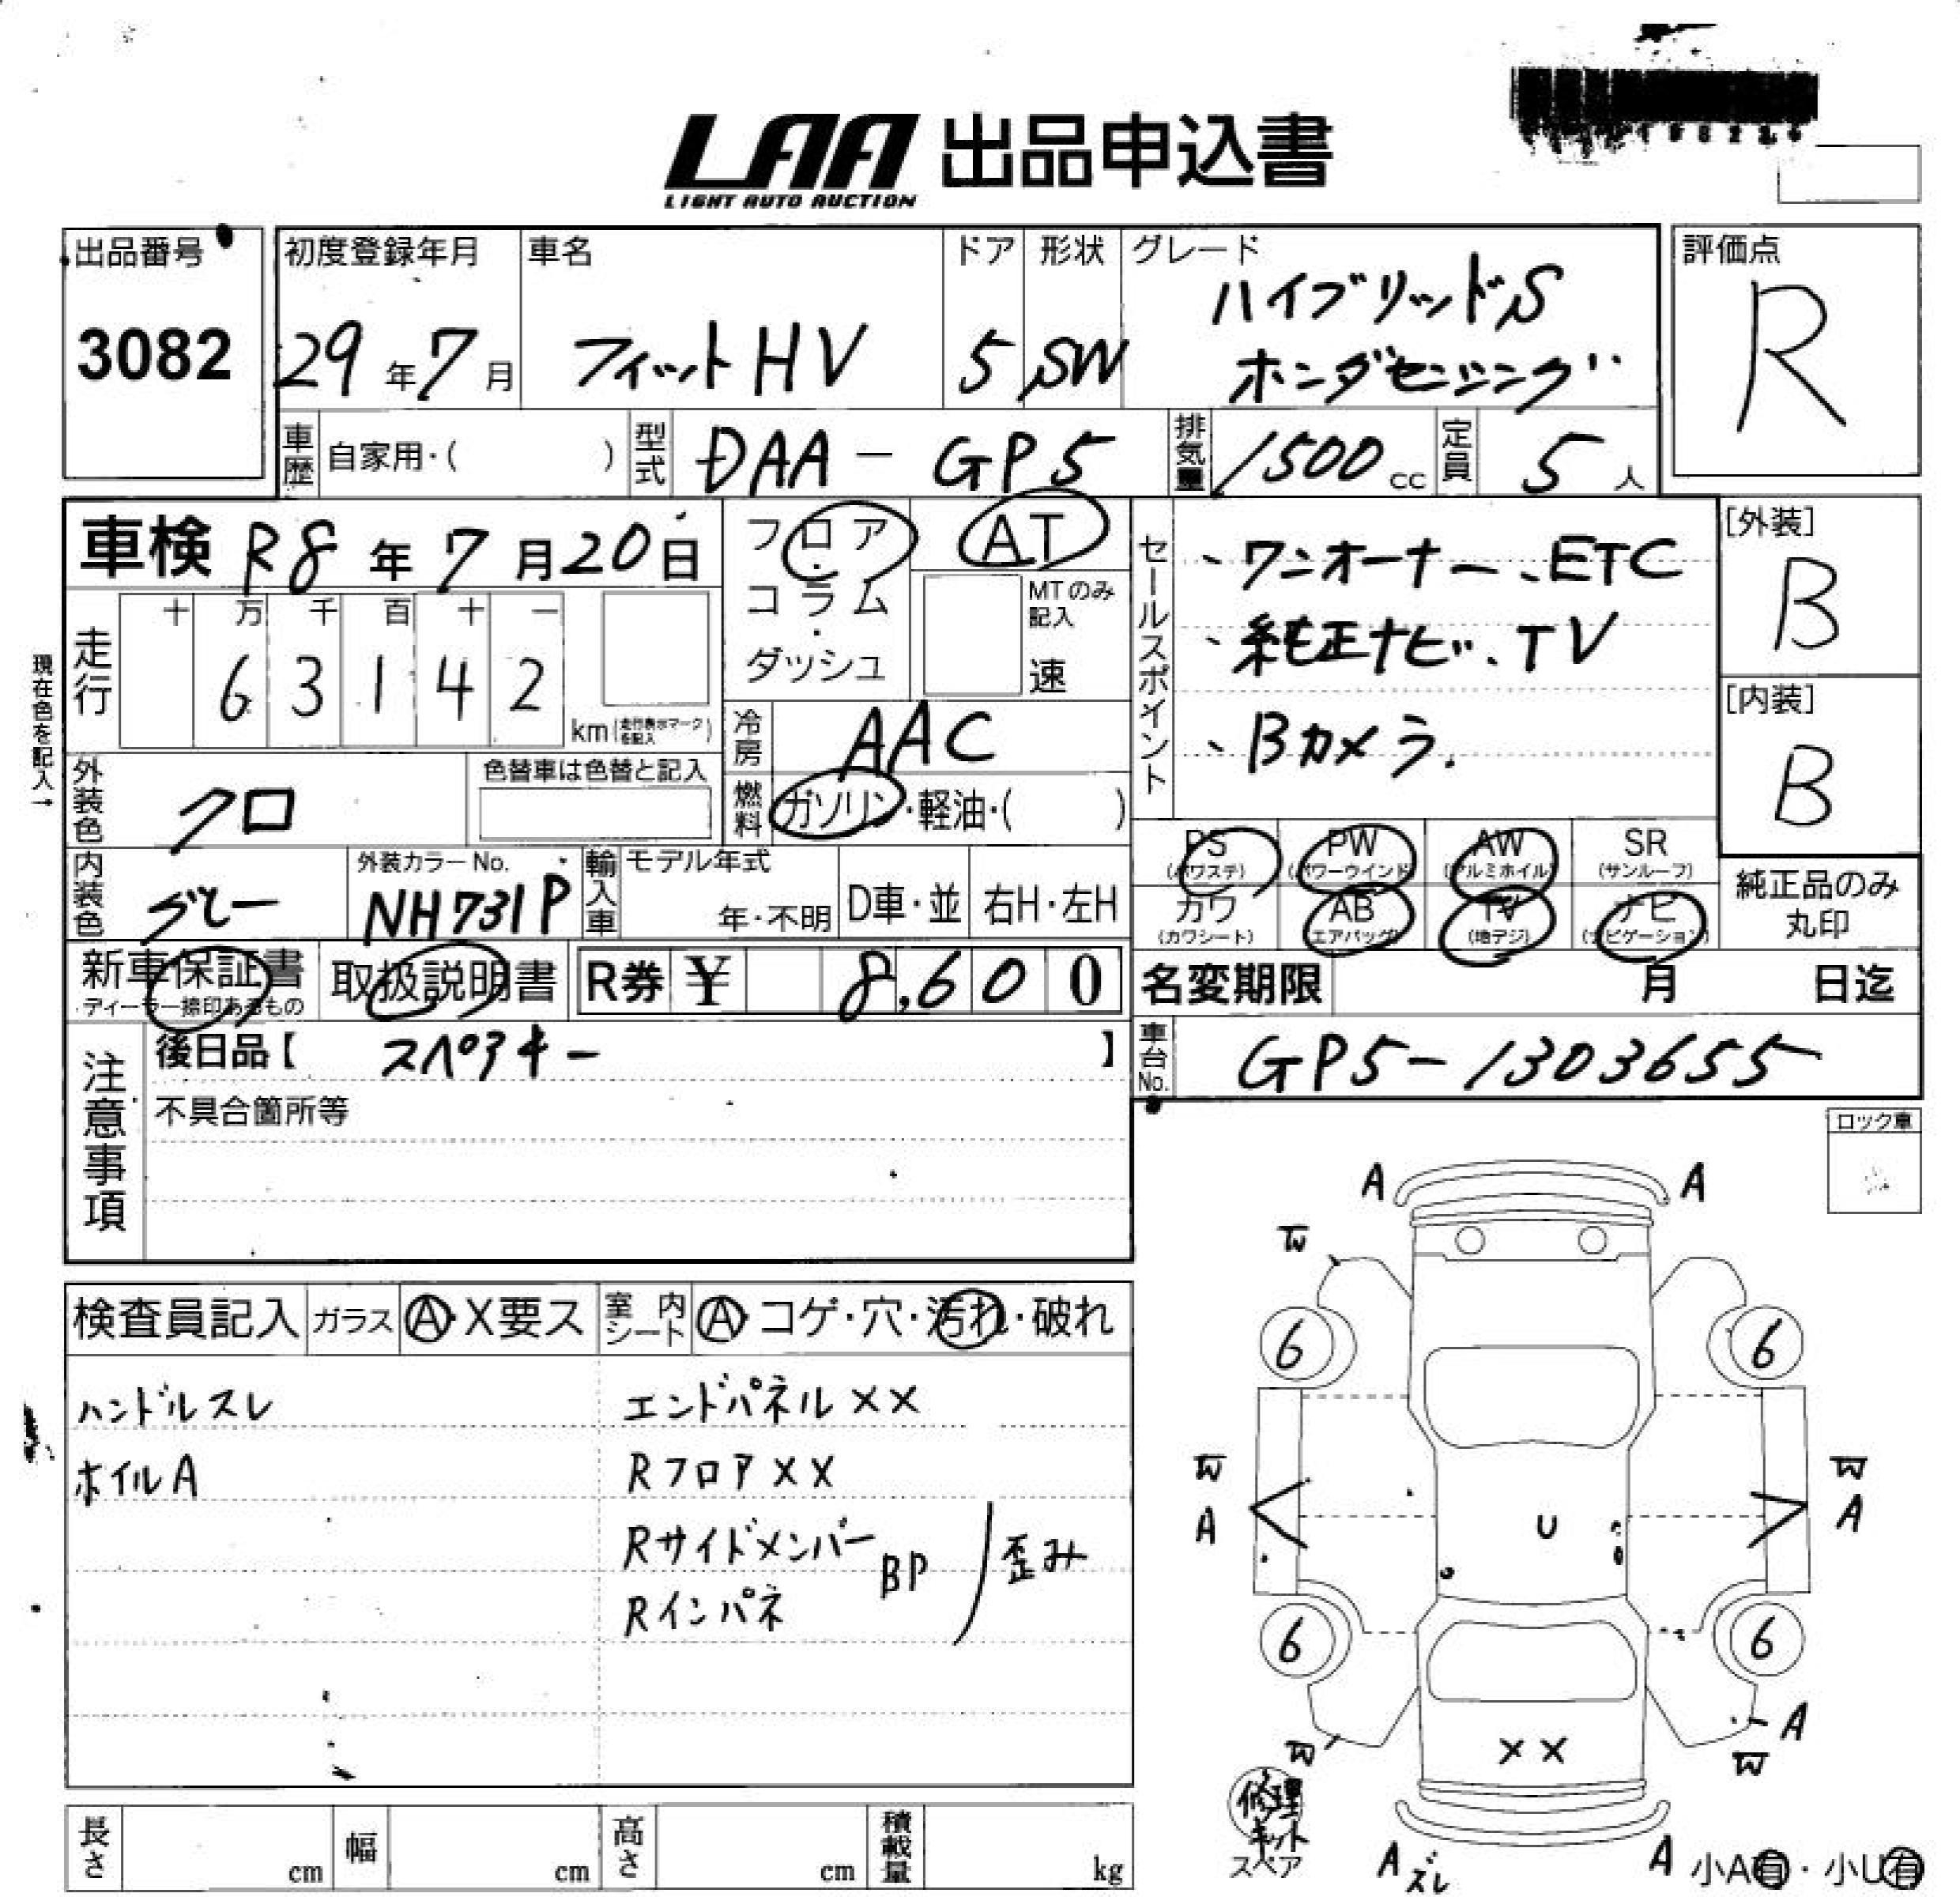 LAA 出品申込書
LIGHT AUTO AUCTION
出品番号
3082
初度登録年月
29年7月
車名
フィットHV
ドア
5
形状
SW
グレード
ハイブリッドS
ホンダセンシング
評価点
R
車歴 自家用・( )
型式 DAA-GP5
排気量 1500cc
定員 5人
車検 R8年7月20日
フロア・コラム・ダッシュ
AT
MTのみ記入
速
セールスポイント
、ワンオーナー、ETC
、純正ナビ、TV
、Bカメラ.
[外装]
B
[内装]
B
現在色を記入→
走行
十 万 千 百 十 一
6 3 1 4 2
km(走行表示マークを記入)
冷房 AAC
燃料 ガソリン・軽油・( )
外装色 クロ
色替車は色替と記入
内装色 グレー
外装カラーNo.
NH731P
輸入車
モデル年式
年・不明
D車・並
右H・左H
PS (パワステ)
PW (パワーウインド)
AW (アルミホイル)
SR (サンルーフ)
カワ (カワシート)
AB (エアバッグ)
TV (地デジ)
ナビ (ナビゲーション)
純正品のみ丸印
新車保証書
ディーラー捺印あるもの
取扱説明書
R券 ¥ 8,600
名変期限 月 日迄
注意事項
後日品【 スペアキー 】
不具合箇所等
車台No. GP5-1303655
ロック車
検査員記入
ガラス A・X要ス
室内シート A・コゲ・穴・汚れ・破れ
ハンドルスレ
エンドパネル××
ホイルA
Rフロア××
Rサイドメンバー
BP
歪み
Rインパネ
A A
W
6 6
W W
A A
U
6 6
A
W W
××
修理キット
スペア
A ズレ
A
小A有・小U有
長さ cm
幅 cm
高さ cm
積載量 kg